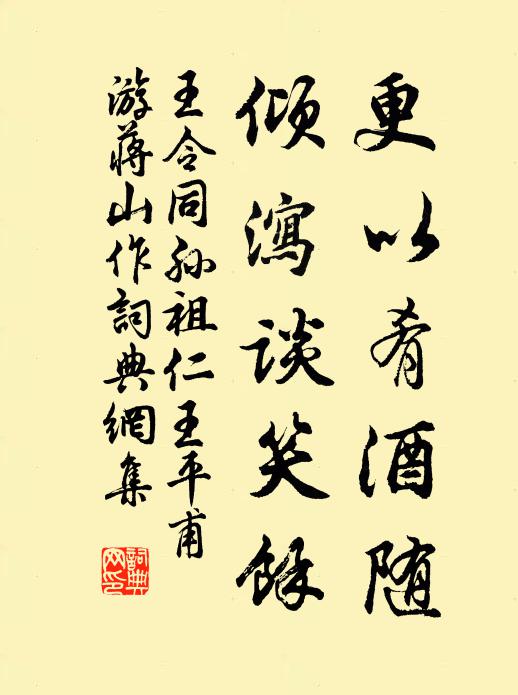 更以肴酒随
倾泻谈笑馀
王令同孙祖仁王平甫
游蒋山作詞典網集
詞典網印